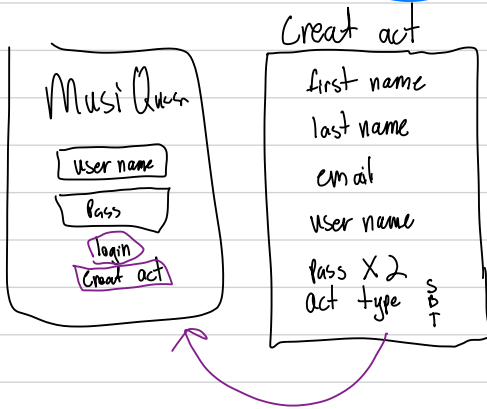 Musi
user name
Pass
login
Creat act
Creat act
first name
last name
email
user name
Pass X 2
act type S B T